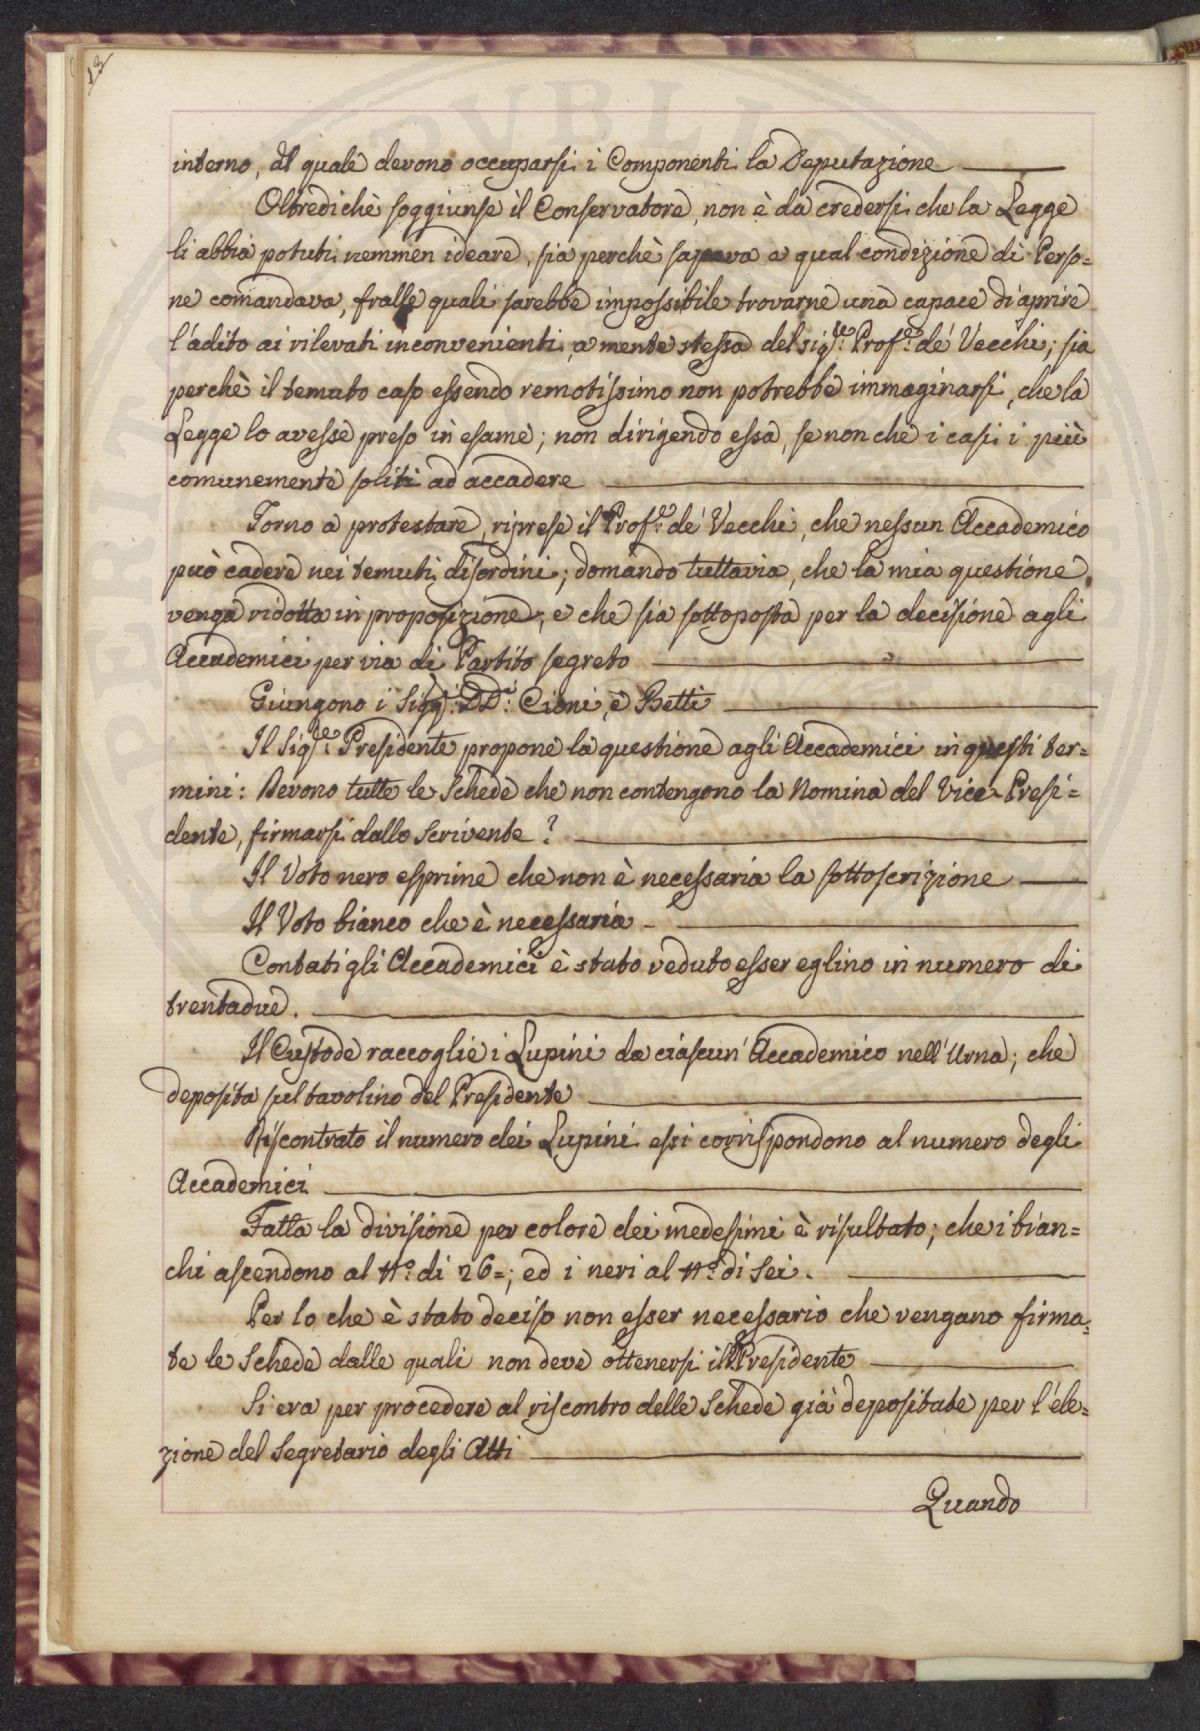 13
interno, al quale devono occuparsi i Componenti la Deputazione
Oltredichè soggiunse il Conservatore, non è da credersi che la Legge
li abbia potuti nemmen ideare, sia perchè sapeva a qual condizione di Perso=
ne comandava, fralle quali sarebbe impossibile trovarne una capace di aprire
l'adito ai rilevati inconvenienti, a mente stessa del sig.re Prof.re de' Vecchi; sia
perchè il temuto caso essendo remotissimo non potrebbe immaginarsi, che la
Legge lo avesse preso in esame; non dirigendo essa, se non che i casi i più
comunemente soliti ad accadere
Torno a protestare, riprese il Prof.re de' Vecchi, che nessun Accademico
può cadere nei temuti disordini; domando tuttavia, che la mia questione
venga ridotta in proposizione; e che sia sottoposta per la decisione agli
Accademici per via di Partito segreto
Giungono i Sigg.i DD.i Cioni, e Betti
Il Sig.re Presidente propone la questione agli Accademici in questi ter=
mini: Devono tutte le Schede che non contengono la Nomina del Vice-Presi=
dente, firmarsi dallo Scrivente?
Il Voto nero esprime che non è necessaria la sottoscrizione
Il Voto bianco che è necessaria
Contati gli Accademici è stato veduto esser eglino in numero di
trentadue.
Il Custode raccoglie i Lupini da ciascun' Accademico nell'Urna; che
deposita sul tavolino del Presidente
Riscontrato il numero dei Lupini essi corrispondono al numero degli
Accademici
Fatta la divisione per colore dei medesimi è risultato; che i bian=
chi ascendono al N.o di 26=; ed i neri al N.o di Sei.
Per lo che è stato deciso non esser necessario che vengano firma=
te le Schede dalle quali non deve ottenersi il Presidente
Si era per procedere al riscontro delle Schede già depositate per l'ele=
zione del Segretario degli Atti
Quando